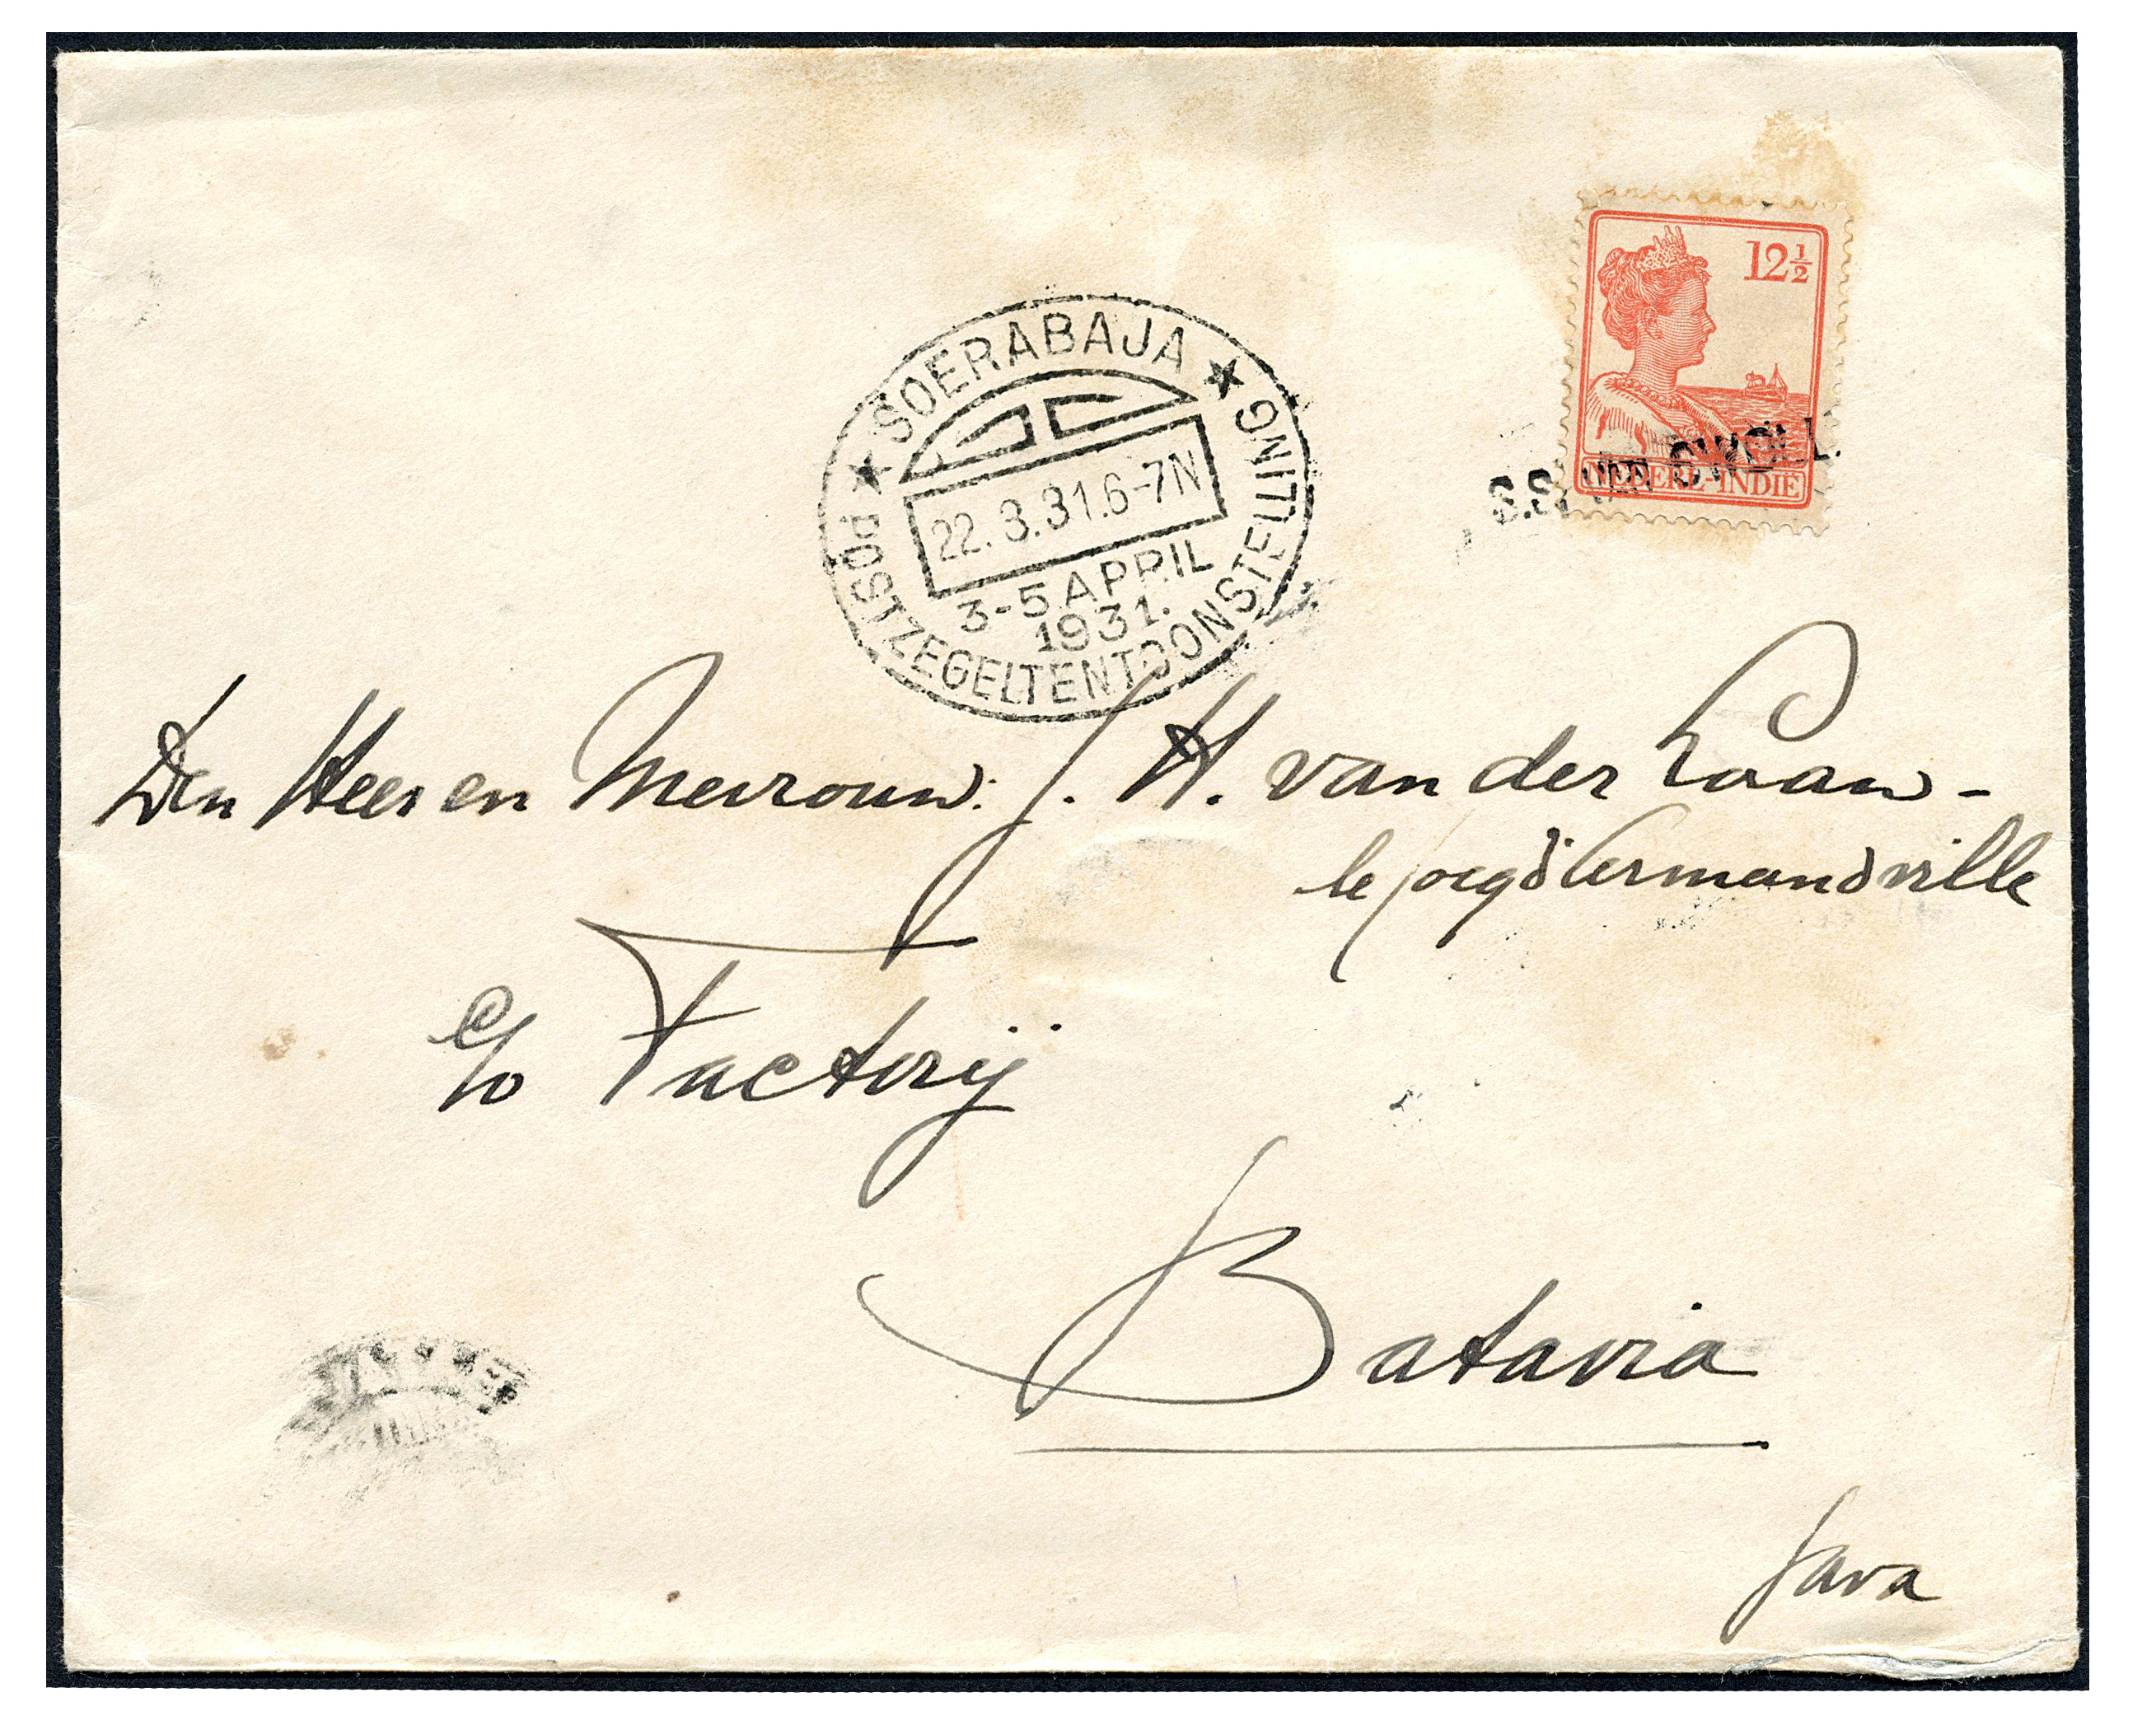 12½
NEDERL-INDIË
S.S. VAN SWOLL.
★ SOERABAJA ★
22.3.31.6-7N
3-5 APRIL
1931.
POSTZEGELTENTOONSTELLING
Den Heer en Mevrouw: J. H. van der Laaw-
le d'Armandville
c/o Factorij
Batavia
Java